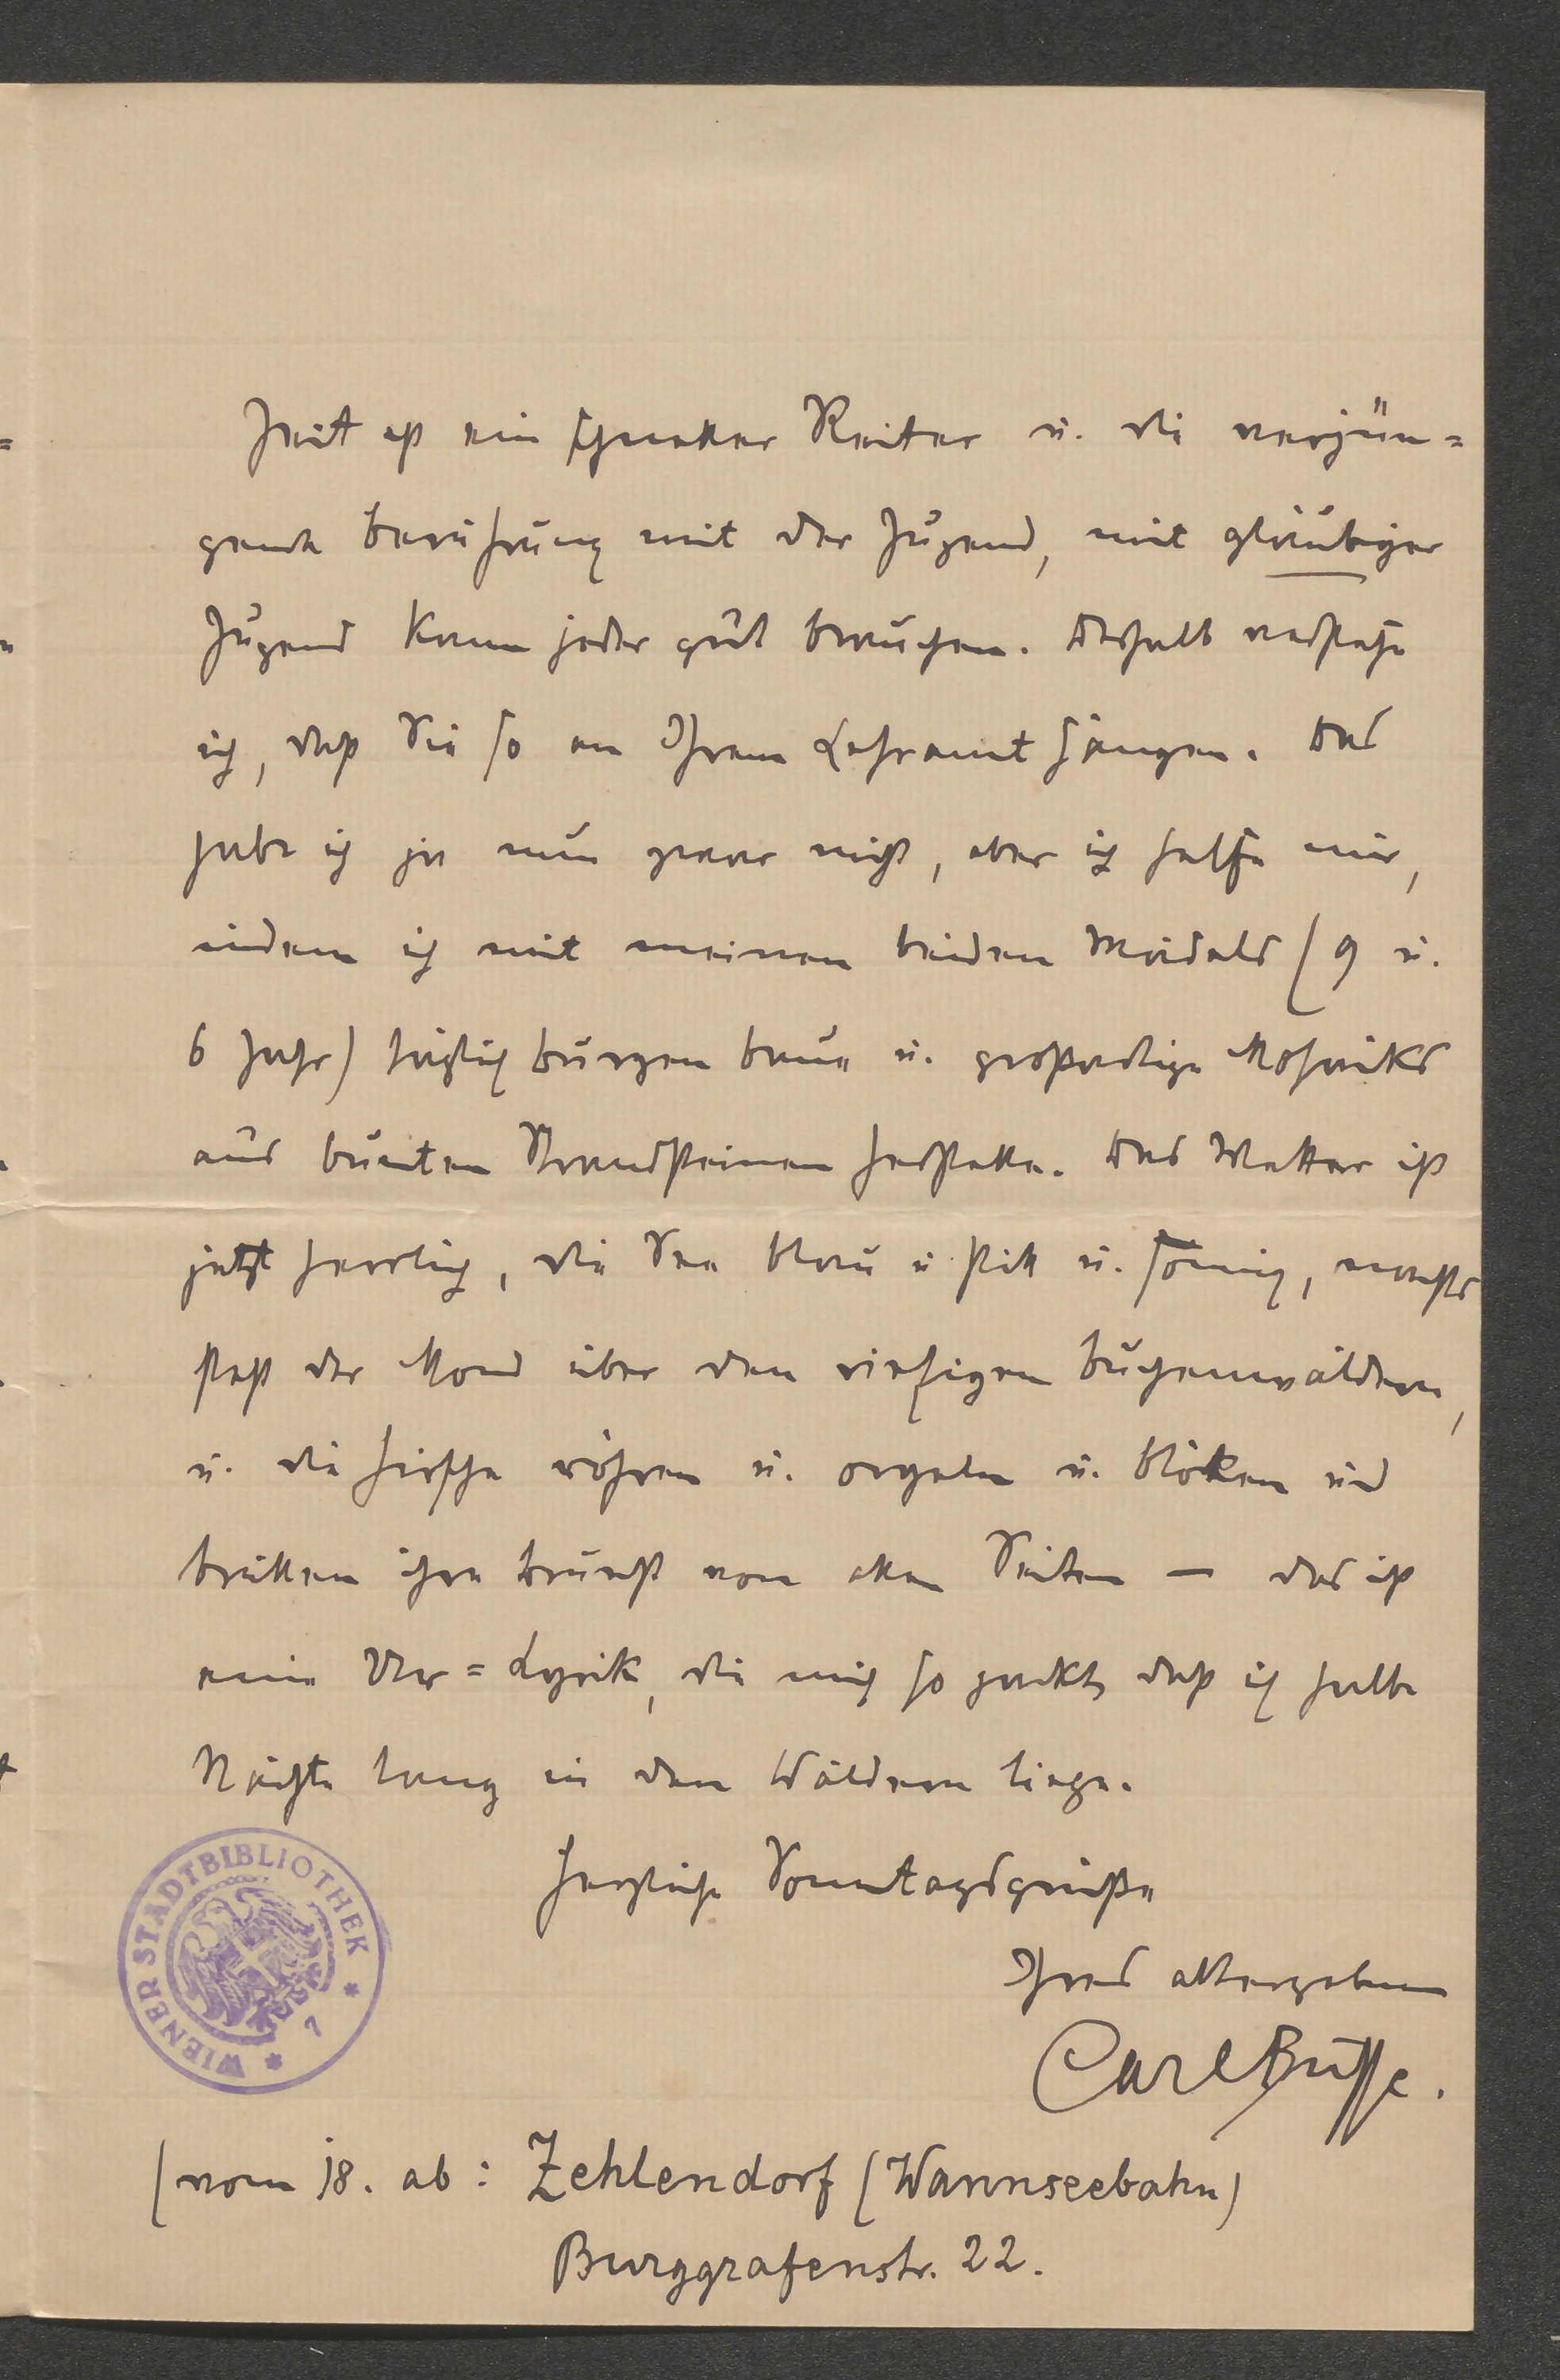 Zeit ist ein schneller Reiter u. die verjün=
gende Berührung mit der Jugend, mit gläubiger
Jugend kann jeder gut brauchen. Deshalb verstehe
ich, daß Sie so an Ihrem Lehramt hängen. Das
habe ich ja nun zwar nicht, aber ich helfe mir,
indem ich mit meinen beiden Mädels (9 u.
6 Jahr) täglich Burgen baue u. großartige Mosaiks
aus bunten Strandsteinen herstelle. Das Wetter ist
jetzt herrlich, die See blau u still u. sonnig, nachts
steht der Mond über den riesigen Buchenwäldern,
u. die Hirsche röhren u. orgeln u. blöken und
brüllen ihre Brunst von allen Seiten — das ist
eine Ur=Lyrik, die mich so packt, daß ich halbe
Nächte lang in den Wäldern liege.
Herzliche Sonntagsgrüße
Ihres allergebenen
Carl Busse.
(vom 18. ab: Zehlendorf (Wannseebahn)
Burggrafenstr. 22.
WIENER STADTBIBLIOTHEK
7